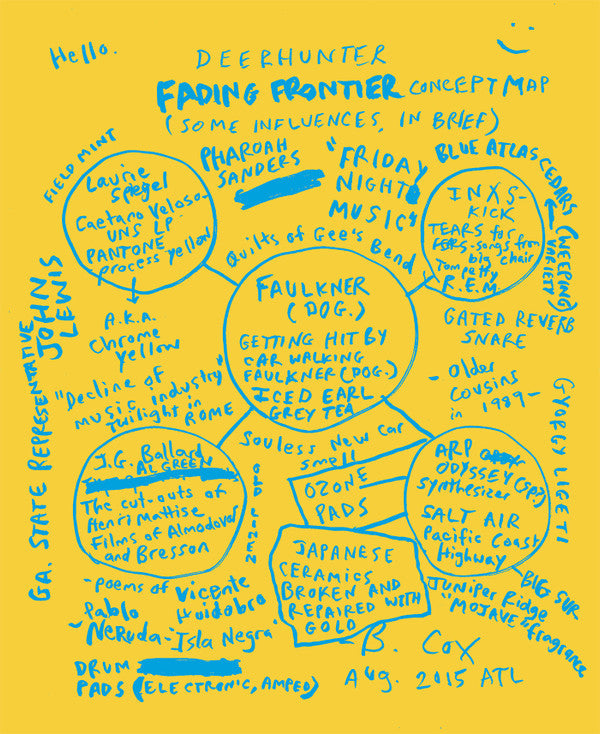 Hello.
DEERHUNTER
FADING FRONTIER CONCEPT MAP
(SOME INFLUENCES, IN BRIEF)
FIELD MINT
Laurie
Spiegel
Caetano Veloso -
UNS LP
PANTONE
process yellow
A.K.A.
Chrome
yellow
PHAROAH
SANDERS
"FRIDAY
NIGHT
MUSIC"
Quilts of Gee's Bend
BLUE ATLAS CEDARS
(WEEPING)
VARIETY
INXS-
KICK
TEARS for
FEARS-songs from
big chair
Tom petty
R.E.M.
GATED REVERB
SNARE
FAULKNER
(DOG.)
GETTING HIT BY
CAR WALKING
FAULKNER (DOG.)
ICED EARL
GREY TEA
GA. STATE REPRESENTATIVE
JOHN
LEWIS
"Decline of
music industry"
Twilight in
ROME
- older
cousins
in 1989 -
GYORGY LIGETI
J.G. Ballard
AL GREEN
The cut-outs of
Henri Mattise
Films of Almodovar
and Bresson
Souless New Car
smell
OZONE
PADS
JAPANESE
CERAMICS
BROKEN AND
REPAIRED WITH
GOLD
ARP
ODYSSEY (sp?)
Synthesizer
SALT AIR
Pacific Coast
Highway
BIG SUR
Juniper Ridge
"MOJAVE" fragrance
-poems of Vicente
Huidobro
- Pablo
Neruda - "Isla Negra"
DRUM
PADS (ELECTRONIC, AMPED)
- B. Cox
Aug. 2015 ATL